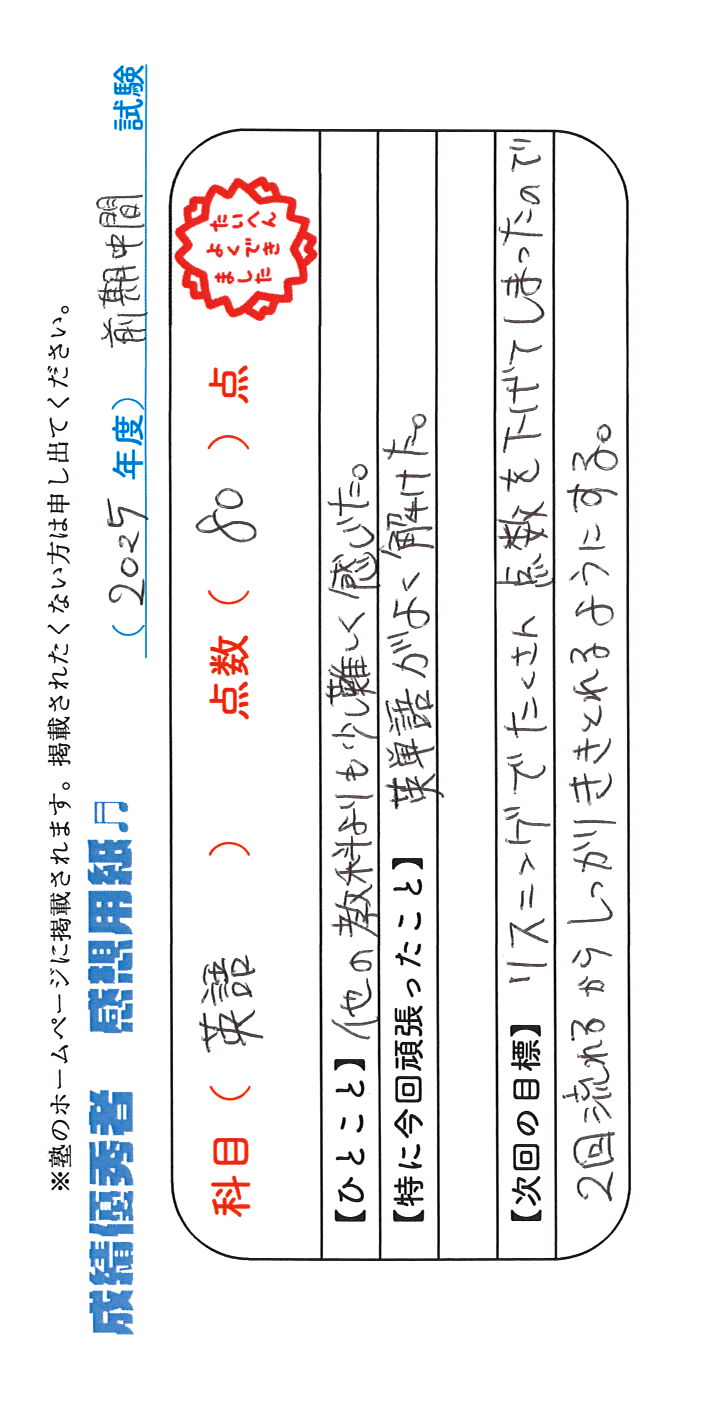 ※塾のホームページに掲載されます。掲載されたくない方は申し出てください。
成績優秀者 感想用紙♫ （2025年度）前期中間 試験
科目（英語）点数（80）点
たいへん
よくでき
ました
【ひとこと】他の教科よりも少し難しく感じた。
【特に今回頑張ったこと】英単語がよく解けた。
【次回の目標】リスニングでたくさん点数を下げてしまったので
2回流れるからしっかりききとれるようにする。